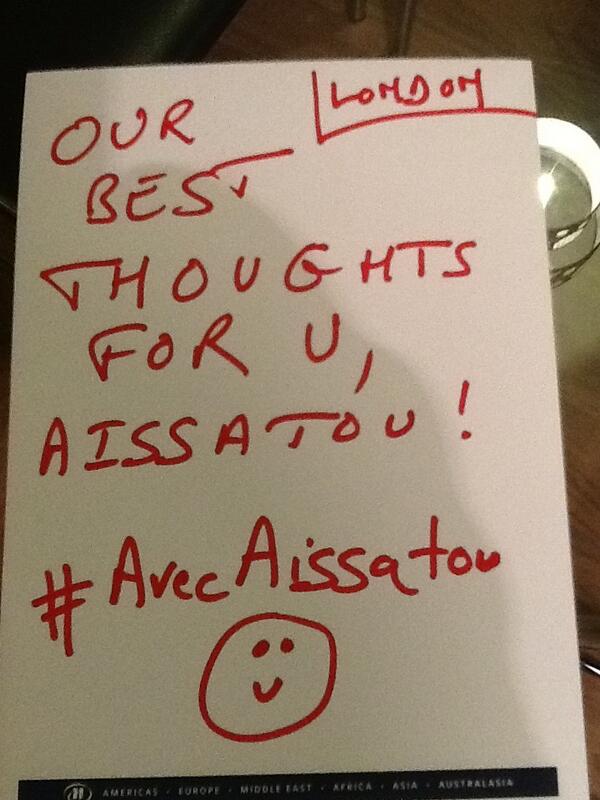 LONDON
OUR
BEST
THOUGHTS
FOR U,
AISSATOU!
#AvecAissatou
AMERICAS · EUROPE · MIDDLE EAST · AFRICA · ASIA · AUSTRALASIA